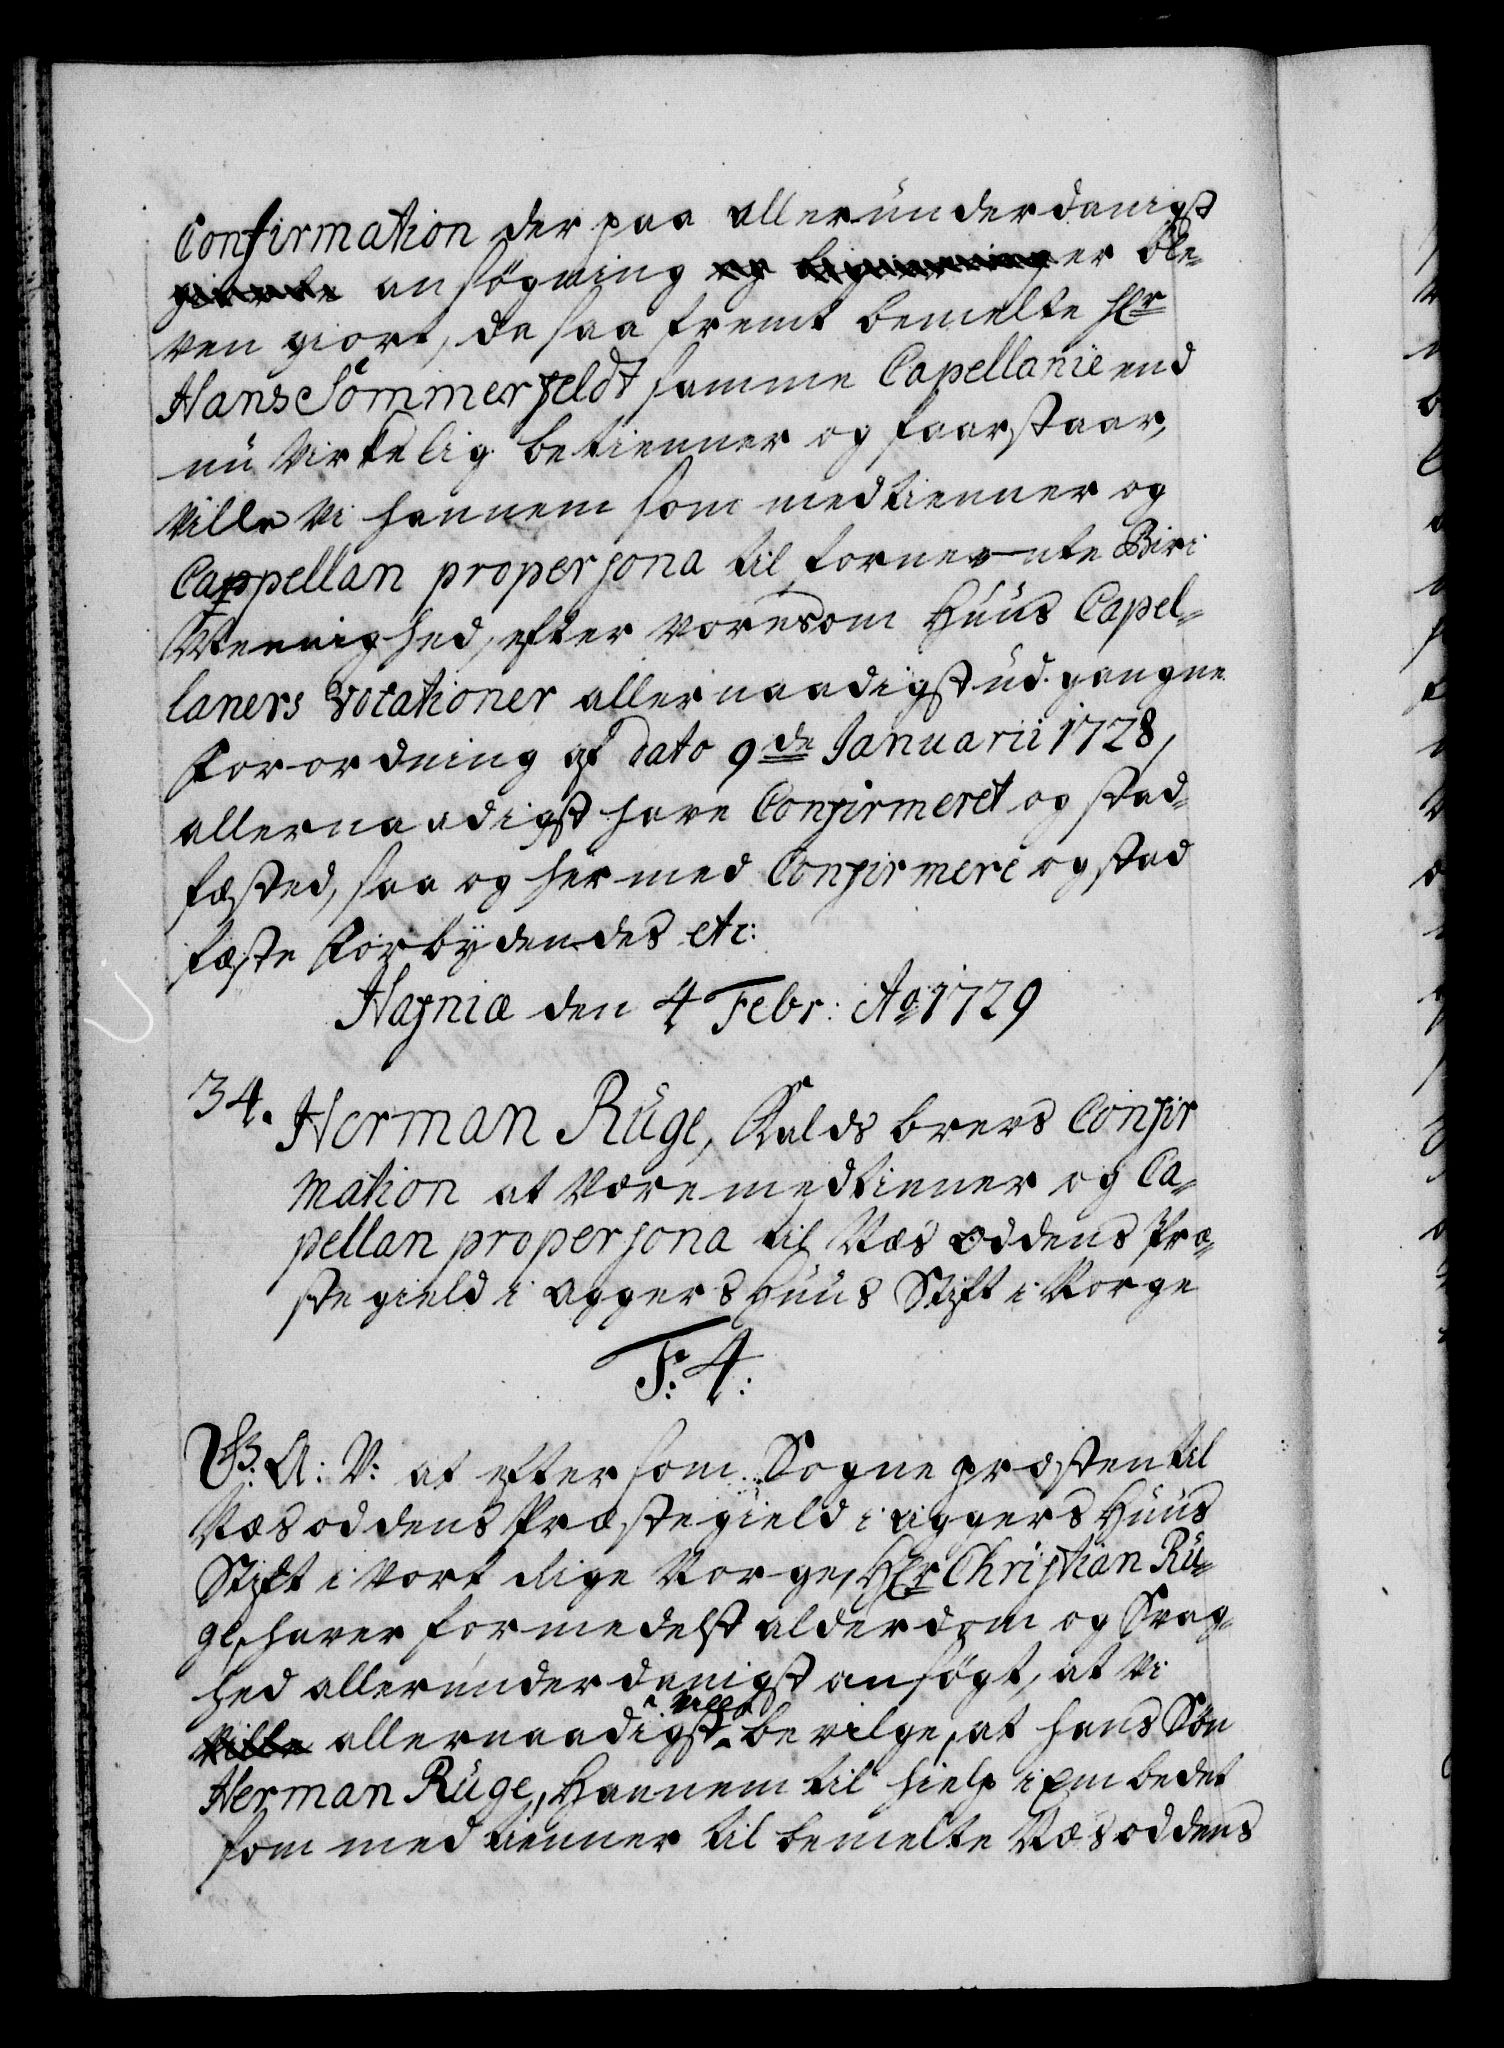 Confirmation der paa allerunderdanigst
ansøgning er ble-
ven giort, da saafremt bemelte Hr
Hans Sommerfeldt samme Capellanie end
nu Virkelig betienner og foorstaar,
Ville Vi hannem som medtienner og
Cappellan propersona til fornevnte Biri
Meenighed, efter vores om Huus Capel-
laners Vocationer allernaadigst udgangne
Forordning af dato 9de Januarii 1728,
allernaadigst have Confirmeret og stad-
fæsted, saa og hermed Confirmere og stad
fæste Forbydendes etc:
Hafniæ den 4 Febr: Ao 1729
34. Herman Ruge, Kalds brevs Confir
mation at være medtienner og Ca-
pellan propersona til Næs oddens Præ-
stegield i Aggers Huus Stift i Norge
F: 4:
G: A: V: at eftersom Sogne præsten til
Næsoddens Præstegield i Aggers Huus
Stift i Vort Rige Norge, Hr Christian Ru-
ge, haver formedelst alderdom og Svag-
hed allerunderdanigst ansøgt, at Vi
Ville allernaadigst Ville bevilge, at hans Søn
Herman Ruge, Hannem til hielp i Embedet
som medtienner til bemelte Næsoddens